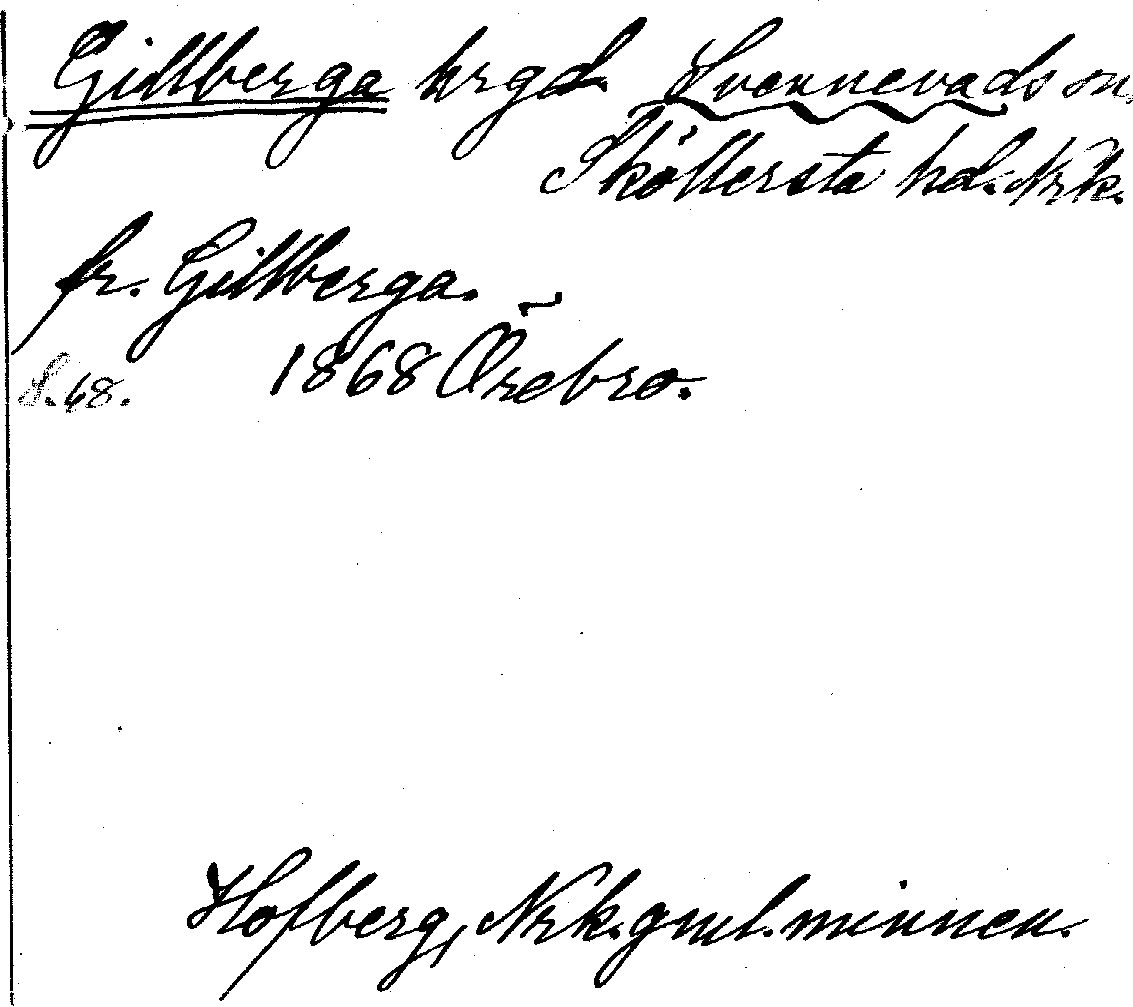 Gillberga hrgd. Svennevads sn.
Sköllersta hd. Nrk.
fr. Gillberga.
S. 48. 1868 Örebro.
Hofberg, Nrk. gml. minnen.